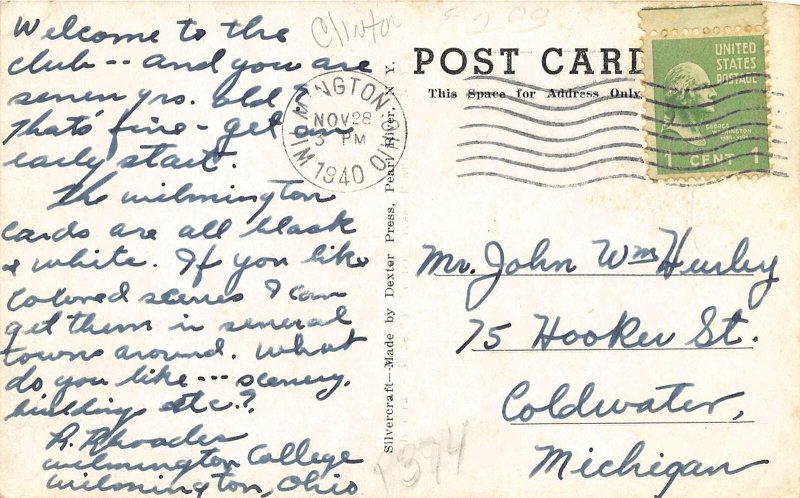 Welcome to the
club -- and you are
seven yrs. old?
That's fine - get an
early start.
The Wilmington
cards are all black
& white. If you like
colored scenes I can
get them in several
towns around. What
do you like --- scenery,
buildings etc.?
R. Rhoades
Wilmington College
Wilmington, Ohio
Clinton
WILMINGTON OHIO
NOV 28
3 PM
1940
Silvercraft—Made by Dexter Press, Pearl River, N. Y.
POST CARD
This Space for Address Only
UNITED
STATES
POSTAGE
GEORGE
WASHINGTON
1 CENT 1
Mr. John Wm Hurley
75 Hooker St.
Coldwater,
Michigan
1394